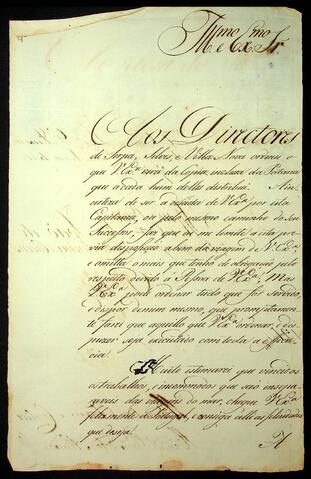 Illmo Exmo
M e Ex Sr
Aos Directores
de Serpa, Silves, e Villa Nova ordeno o
que V Exa verá da Copia inclusa da Portaria
que a cada hum delles distribui. A in-
certeza de ser a espedir de V Exa por esta
Capitania, ou pelo mesmo caminho do seu
Sucessor, faz que eu me limite a esta pre-
via disposição a bem da viagem de V Exa
e omitta o mais que tenho de obrigação pelo
respeito devido á Pessoa de V Exa; Mas
V Exa pode ordenar tudo que for servido,
e dispor de mim mesmo, que promptamen-
te farei que aquillo que V Exa ordenar, e dis-
puzer seja executado com toda a effica-
cia.
Muito estimarei que vencidos
os trabalhos, e incommodos que são insepa-
raveis das viagens do mar, chegue V Exa
felismente a Portugal, e consiga todas as felicidades
que deseja.
A